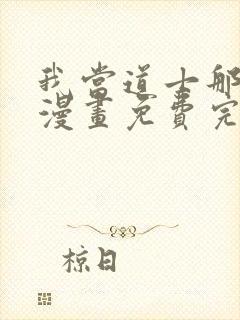 我当道士那
漫畫免費完
椋日